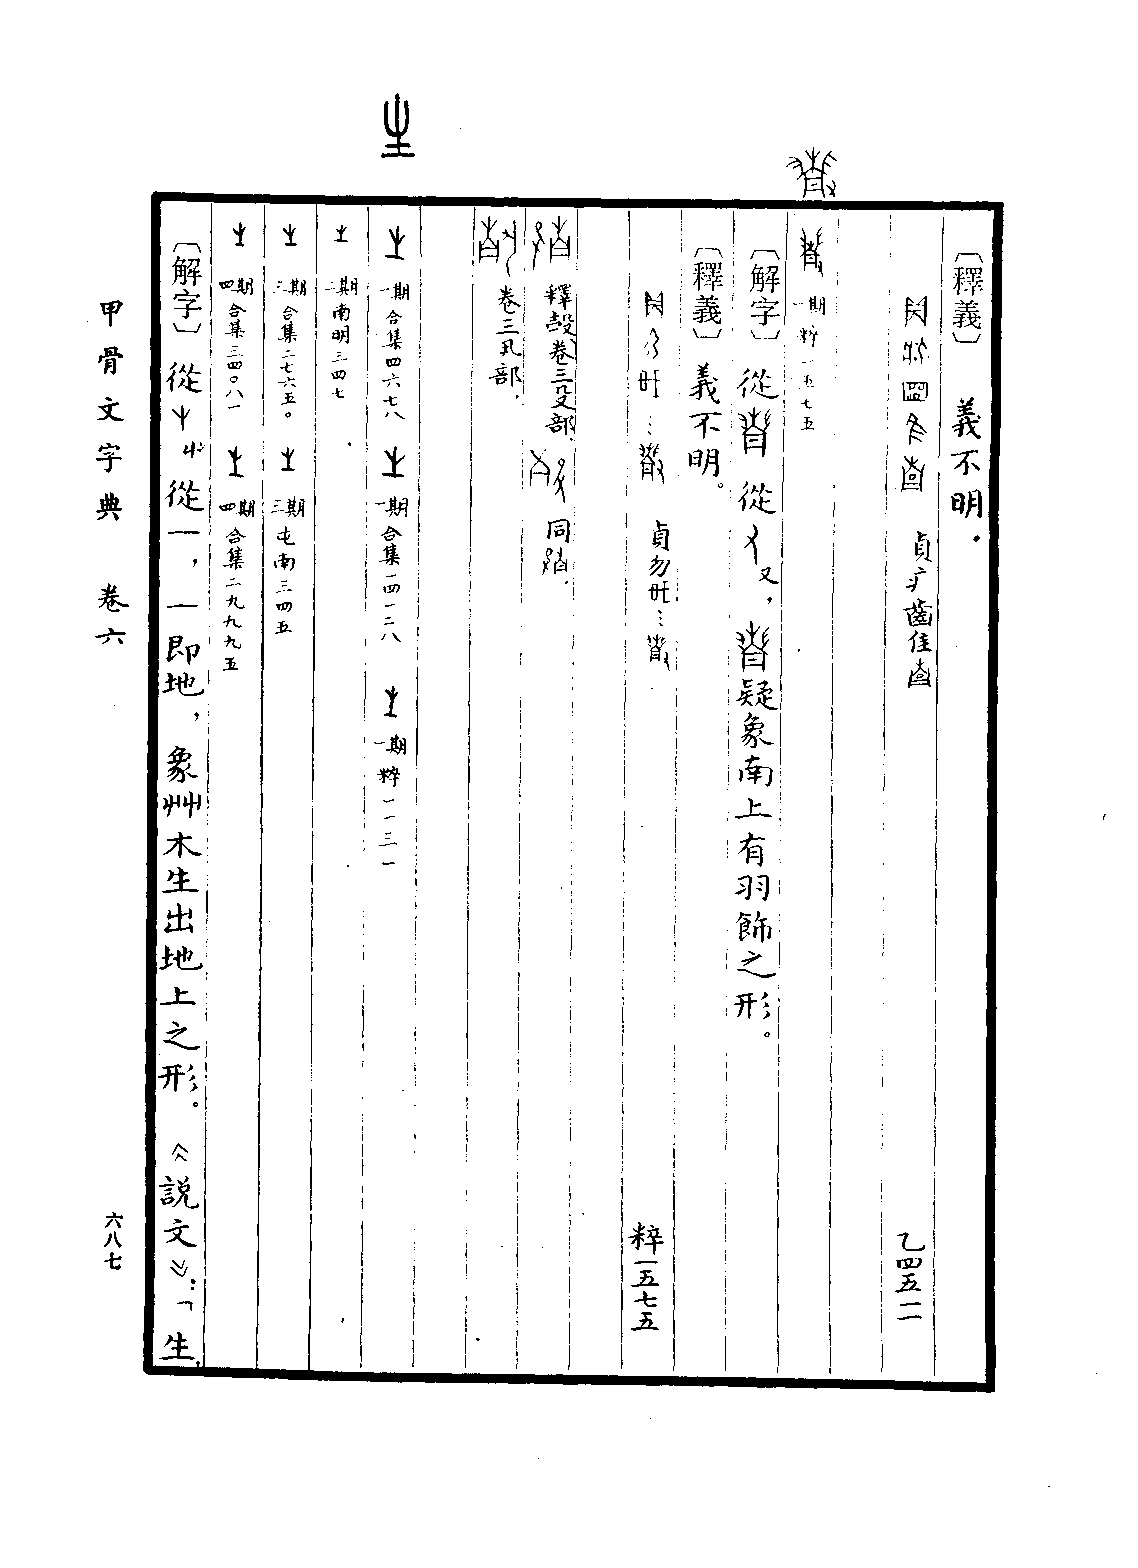 〔釋義〕 義不明．
貞疒齒隹 乙四五一一
一期 粹一五七五
〔解字〕 從 從 又， 疑象南上有羽飾之形。
〔釋義〕 義不明。
貞勿 … 粹一五七五
釋㱿，卷三殳部． 同
卷三丮部．
生
一期 合集四六七八 一期 合集一四一二八 一期 粹一一三一
二期 南明三四七
三期 合集二七六五〇 三期 屯南三四五
四期 合集三四〇八一 四期 合集二九九九五
〔解字〕 從屮，從一，一即地，象艸木生出地上之形。《說文》：「生，
甲骨文字典 卷六
六八七